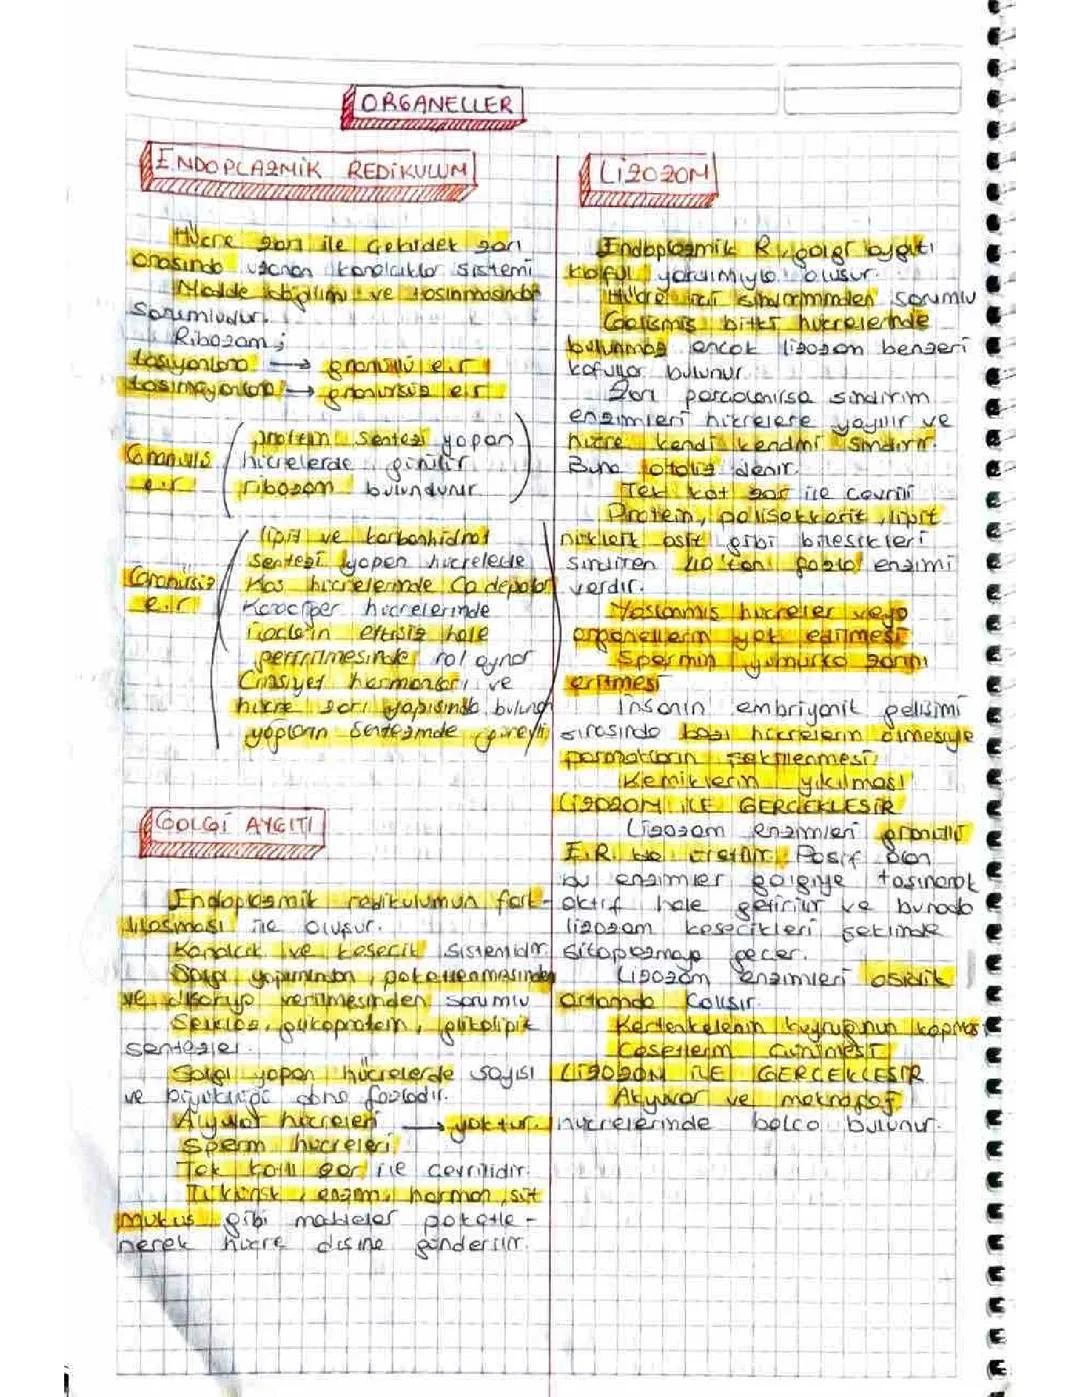 ORGANELLER
ENDOPLAZMİK REDİKULUM
Hücre zarı ile Çekirdek zarı
arasında uzanan kanalcıklar sistemi
Madde iletimi ve taşınmasında
Sorumludur.
Ribozom;
taşıyanlara → granüllü e.r
taşımayanlara → granülsüz e.r
Granüllü
e.r
protein sentezi yapan
hücrelerde görülür
ribozom bulundurur
Granülsüz
e.r
lipit ve karbonhidrat
sentezi yapan hücrelerde
Kas hücrelerinde Ca depolar
Karaciğer hücrelerinde
ilaçların etkisiz hale
getirilmesinde rol oynar
Cinsiyet hormonları ve
hücre zarı yapısında bulunan
yağların sentezinde görevli
GOLGİ AYGITI
Endoplazmik redikulumun fark-
lılaşması ile oluşur.
Kanalcık ve kesecik sistemidir
Salgı yapımından, paketlenmesinden
ve dışarıya verilmesinden sorumlu
Selüloz, glikoprotein, glikolipit
sentezler.
Salgı yapan hücrelerde sayısı
ve büyüklüğü daha fazladır.
Alyuvar hücreleri → yoktur.
Sperm hücreleri
Tek katlı zar ile çevrilidir.
Tükürük, enzim, hormon, süt
mukus gibi maddeler paketle-
nerek hücre dışına gönderilir.
LİZOZOM
Endoplazmik R, golgi aygıtı
koful yardımıyla oluşur.
Hücre içi sindiriminden sorumlu
Gelişmiş bitki hücrelerinde
bulunmaz ancak lizozom benzeri
kofullar bulunur.
Zarı parçalanırsa sindirim
enzimleri hücrelere yayılır ve
hücre kendi kendini sindirir.
Buna otoliz denir.
Tek kat zar ile çevrili
Protein, polisakkarit, lipit
nükleik asit gibi bileşikleri
sindiren 40'tan fazla enzimi
vardır.
Yaşlanmış hücreler veya
organellerin yok edilmesi
Spermin yumurta zarını
eritmesi
İnsanın embriyonik gelişimi
sırasında bazı hücrelerin ölmesiyle
parmakların şekillenmesi
Kemiklerin yıkılması
LİZOZOM İLE GERÇEKLEŞİR
Lizozom enzimleri granüllü
E.R. de üretilir. Pasif olan
bu enzimler golgiye taşınarak
aktif hale getirilir ve burada
lizozom kesecikleri şeklinde
sitoplazmaya geçer.
Lizozom enzimleri asidik
ortamda çalışır.
Kertenkelenin kuyruğunun kopması
Cesetlerin çürümesi
LİZOZOM İLE GERÇEKLEŞİR
Akyuvar ve makrofaj
hücrelerinde bolca bulunur.